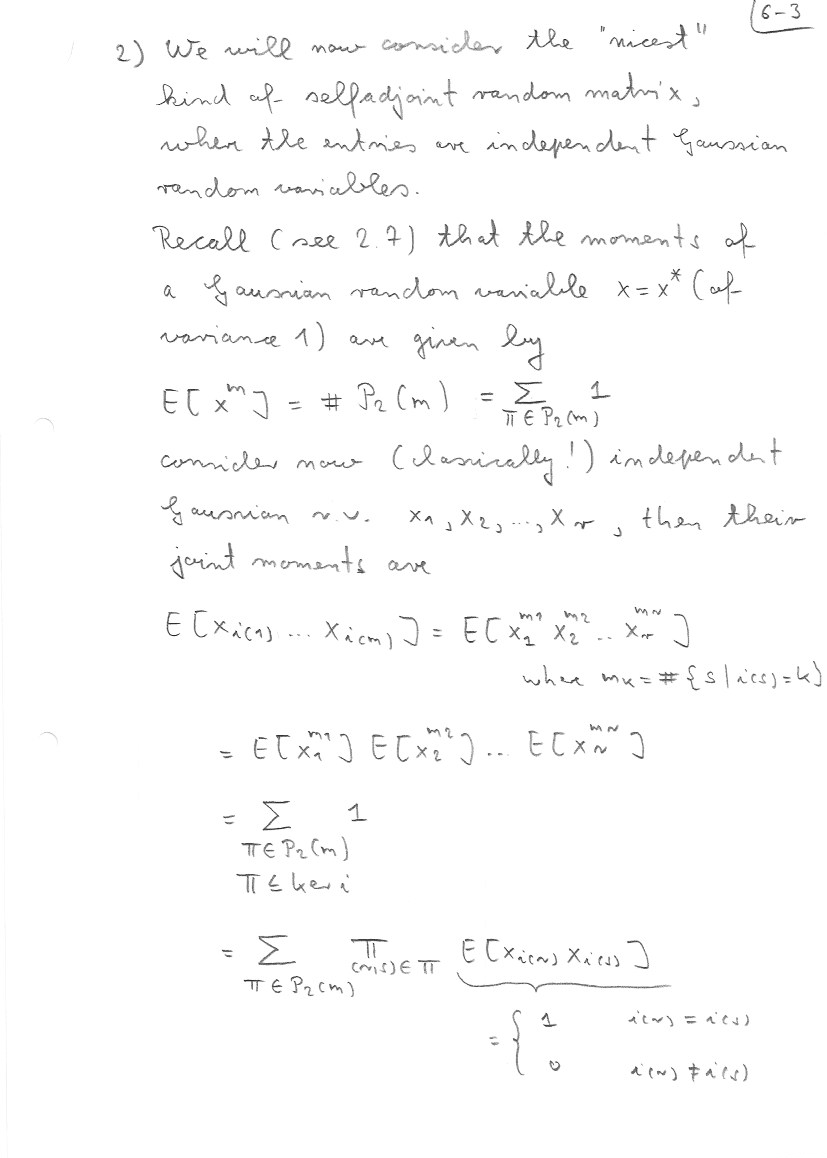 6-3
2) We will now consider the "nicest"
kind of selfadjoint random matrix,
where the entries are independent Gaussian
random variables.
Recall (see 2.7) that the moments of
a Gaussian random variable x = x* (of
variance 1) are given by
E[x^m] = # P₂(m) = ∑_{π ∈ P₂(m)} 1
consider now (classically!) independent
Gaussian r.v. x₁, x₂, ..., x_r, then their
joint moments are
E[x_{i(1)} ... x_{i(m)}] = E[x₁^{m₁} x₂^{m₂} .. x_r^{m_r}]
where m_k = #{s | i(s) = k}
= E[x₁^{m₁}] E[x₂^{m₂}] ... E[x_r^{m_r}]
= ∑_{π ∈ P₂(m), π ≤ ker i} 1
= ∑_{π ∈ P₂(m)} ∏_{(r,s) ∈ π} E[x_{i(r)} x_{i(s)}]
= { 1 i(r) = i(s)
0 i(r) ≠ i(s)